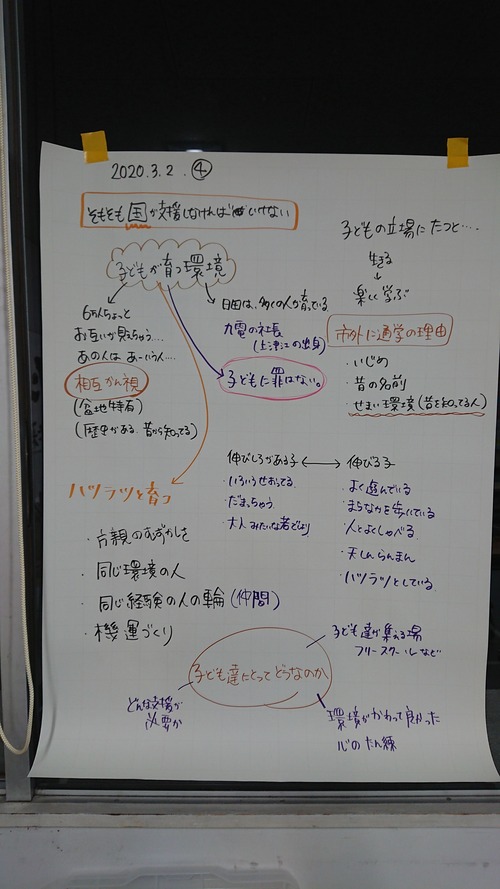 2020.3.2. ④
そもそも国が支援しなければいけない
子どもが育つ環境
6万人ちょっと
お互いが見えちゃう…
あの人は あーいう人…
相互かん視
(盆地特有)
(歴史がある. 昔から知ってる)
日田は、多くの人が育っている
九電の社長
(上津江の出身)
子どもに罪はない。
子どもの立場にたつと….
生きる
↓
楽しく学ぶ
市外に通学の理由
・いじめ
・昔の名前
・せまい環境(昔を知ってる人)
ハツラツと育つ
・片親のむずかしさ
・同じ環境の人
・同じ経験の人の輪(仲間)
・機運づくり
伸びしろがある子 ←→ 伸びる子
・いろいろせおってる
・だまっちゃう
・大人みたいな
・よく遊んでいる
・まちなかを歩いている
・人とよくしゃべる
・天しんらんまん
・ハツラツとしている
子ども達にとってどうなのか
子ども達が集える場
フリースクールなど
どんな支援が
必要か
環境がかわって良かった
心のたん練